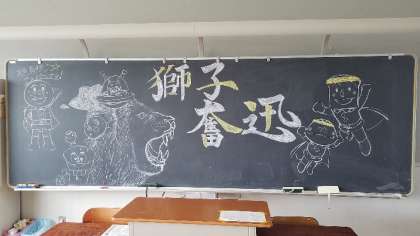 獅子
奮迅